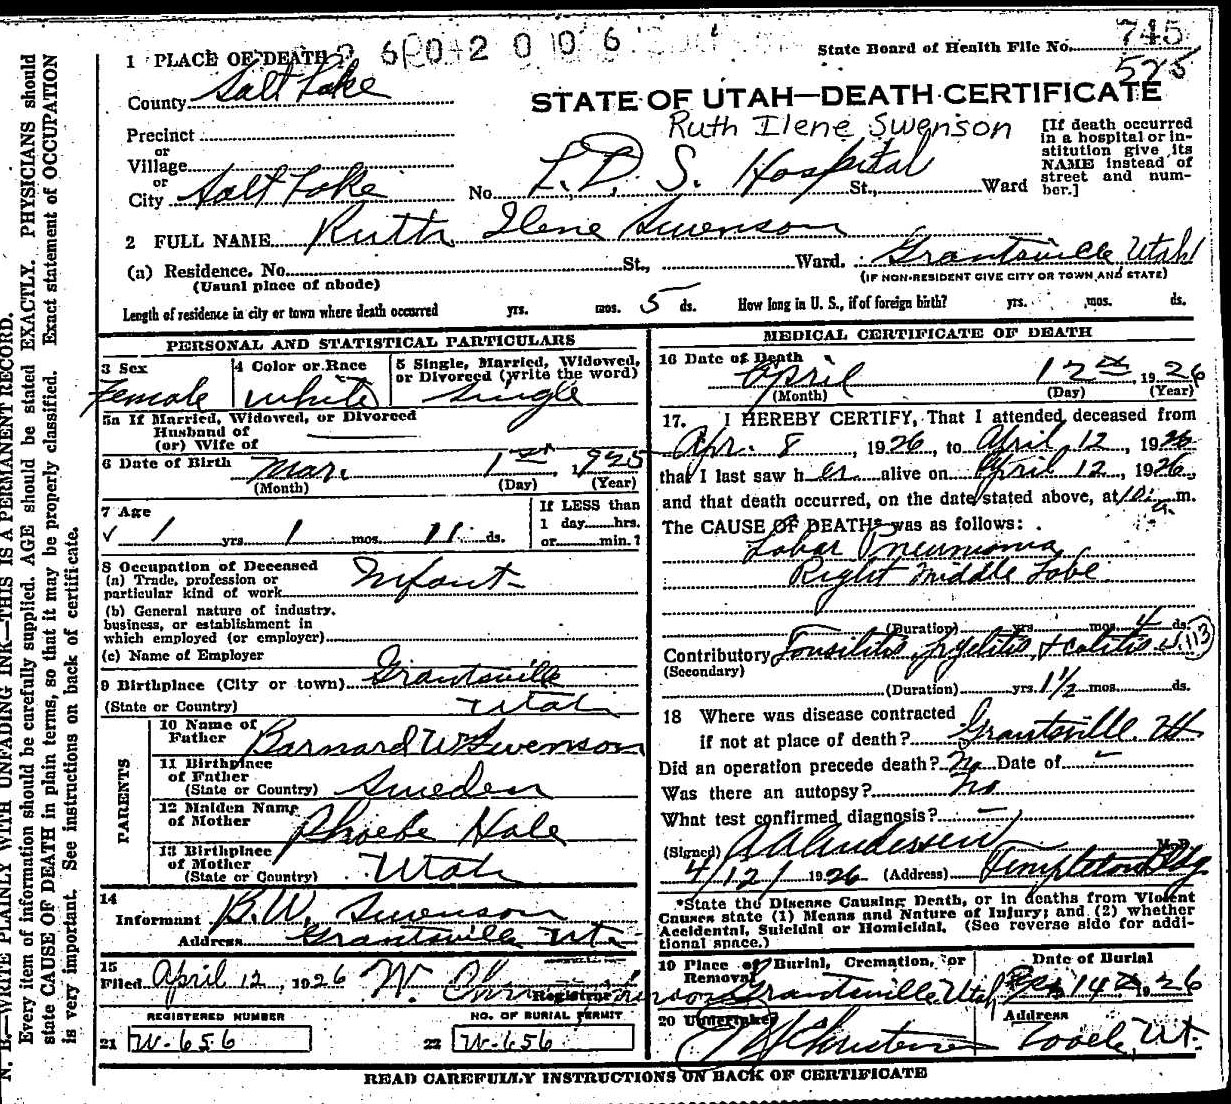 1 PLACE OF DEATH 260420 006
State Board of Health File No. 745
525
County Salt Lake
STATE OF UTAH—DEATH CERTIFICATE
Ruth Ilene Swenson
Precinct
or
Village
or
City Salt Lake No. L.D.S. Hospital St., Ward
[If death occurred
in a hospital or in-
stitution give its
NAME instead of
street and num-
ber.]
2 FULL NAME Ruth Ilene Swenson
(a) Residence. No. St., Ward. Grantsville Utah
(Usual place of abode)
(IF NON-RESIDENT GIVE CITY OR TOWN AND STATE)
Length of residence in city or town where death occurred yrs. mos. 5 ds. How long in U. S., if of foreign birth? yrs. mos. ds.
PERSONAL AND STATISTICAL PARTICULARS
3 Sex 4 Color or Race 5 Single, Married, Widowed,
or Divorced (write the word)
Female white Single
5a If Married, Widowed, or Divorced
Husband of
(or) Wife of
6 Date of Birth Mar. 1st, 1925
(Month) (Day) (Year)
7 Age
If LESS than
1 day hrs.
or min.?
✓ 1 yrs. 1 mos. 11 ds.
8 Occupation of Deceased
(a) Trade, profession or
particular kind of work Infant
(b) General nature of industry.
business, or establishment in
which employed (or employer)
(c) Name of Employer
9 Birthplace (City or town) Grantsville
(State or Country) Utah
PARENTS
10 Name of
Father Barnard Wm Swenson
11 Birthplace
of Father
(State or Country) Sweden
12 Maiden Name
of Mother Phoebe Hale
13 Birthplace
of Mother
(State or Country) Utah
14
Informant B.W. Swenson
Address Grantsville Ut.
15
Filed April 12, 1926 W.
Registrar
REGISTERED NUMBER NO. OF BURIAL PERMIT
21 W-656 22 W-656
MEDICAL CERTIFICATE OF DEATH
16 Date of Death
April 12th, 1926
(Month) (Day) (Year)
17. I HEREBY CERTIFY, That I attended deceased from
Apr. 8, 1926, to April 12, 1926
that I last saw her alive on April 12, 1926,
and that death occurred, on the date stated above, at 10 a. m.
The CAUSE OF DEATH* was as follows:
Lobar Pneumonia
Right Middle Lobe
(Duration) yrs. mos. 4 ds.
Contributory Tonsilitis, pyelitis, & colitis 113
(Secondary)
(Duration) yrs. 1½ mos. ds.
18 Where was disease contracted
if not at place of death? Grantsville Ut
Did an operation precede death? No Date of
Was there an autopsy? No
What test confirmed diagnosis? —
(Signed) M.D.
4/12/1926 (Address) Templeton Bldg
*State the Disease Causing Death, or in deaths from Violent
Causes state (1) Means and Nature of Injury; and (2) whether
Accidental, Suicidal or Homicidal. (See reverse side for addi-
tional space.)
19 Place of Burial, Cremation, or
Removal Grantsville Utah
Date of Burial
14 1926
20 Undertaker
Address
Tooele, Ut.
READ CAREFULLY INSTRUCTIONS ON BACK OF CERTIFICATE
N. B.—WRITE PLAINLY WITH UNFADING INK—THIS IS A PERMANENT RECORD.
Every item of information should be carefully supplied. AGE should be stated EXACTLY. PHYSICIANS should
state CAUSE OF DEATH in plain terms, so that it may be properly classified. Exact statement of OCCUPATION
is very important. See instructions on back of certificate.